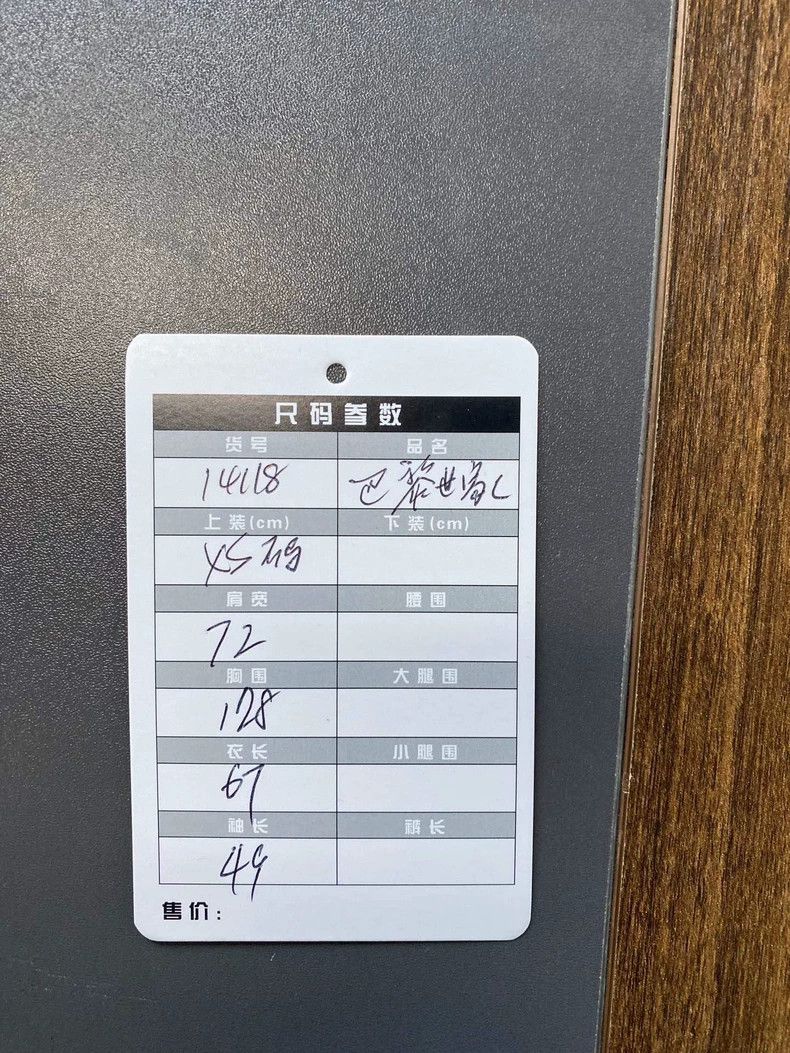 尺码参数
货号 品名
14118 巴黎世家
上装(cm) 下装(cm)
XS码
肩宽 腰围
72
胸围 大腿围
128
衣长 小腿围
67
袖长 裤长
49
售价: